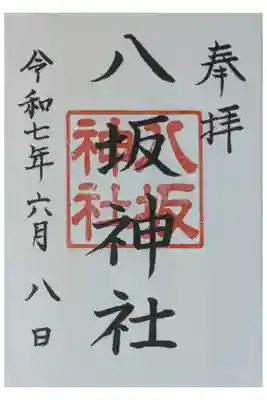 奉拝
八坂神社
八坂
神社
令和七年六月八日